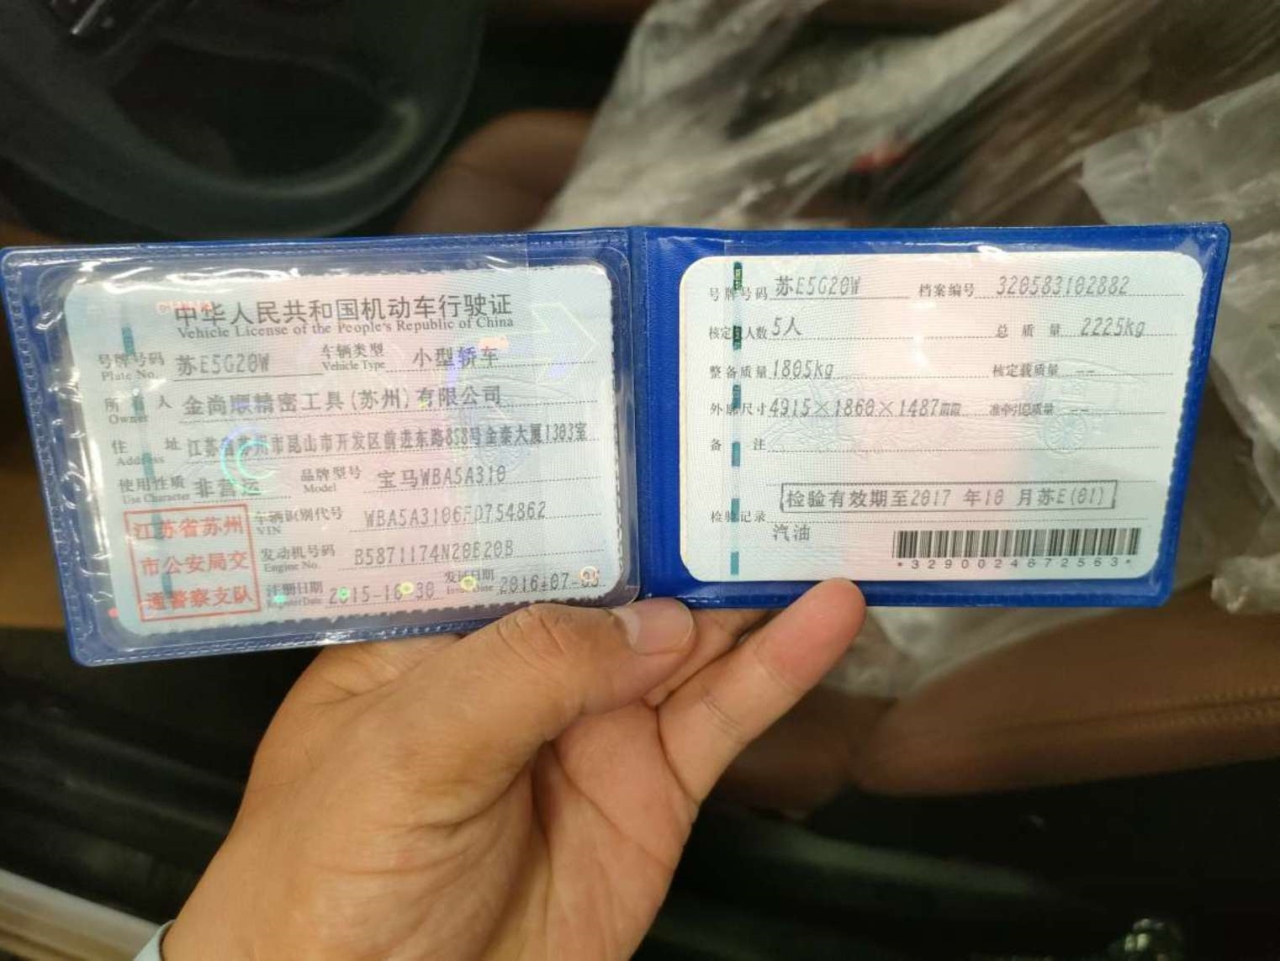 中华人民共和国机动车行驶证
Vehicle License of the People's Republic of China
号牌号码 Plate No. 苏E5G20W 车辆类型 Vehicle Type 小型轿车
所有人 Owner 金尚顺精密工具(苏州)有限公司
住址 Address 江苏省苏州市昆山市开发区前进东路858号金泰大厦1303室
使用性质 Use Character 非营运 品牌型号 Model 宝马WBA5A310
江苏省苏州市公安局交通警察支队
车辆识别代号 VIN WBA5A3106FD754862
发动机号码 Engine No. B5871174N20B20B
注册日期 Register Date 2015-10-30 发证日期 Issue Date 2016-07-
号牌号码 苏E5G20W 档案编号 320583102882
核定载人数 5人 总质量 2225kg
整备质量 1805kg 核定载质量 --
外廓尺寸 4915×1860×1487mm 准牵引总质量 --
备注
检验有效期至2017年10月苏E(01)
检验记录
汽油
*3290024672563*